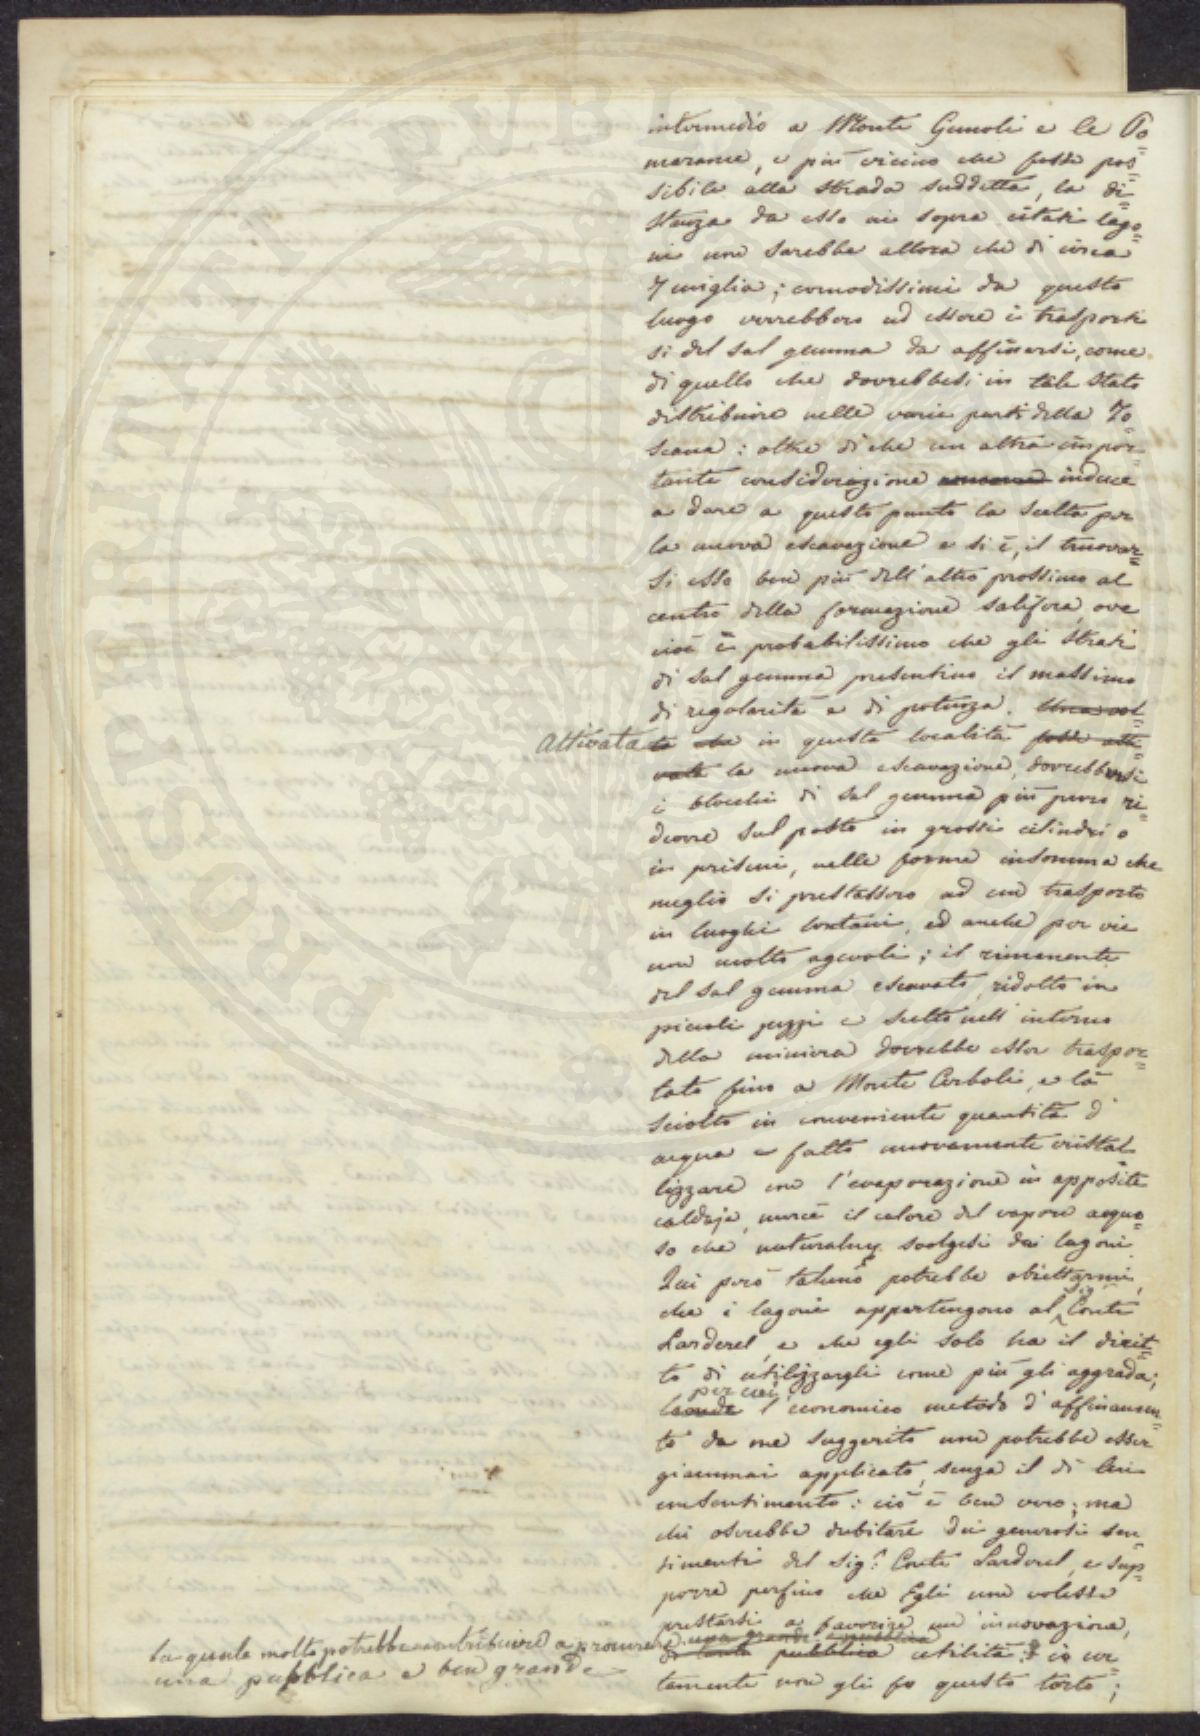 intermedio a Monte Gemoli e le Po=
marance, e più vicino che fosse pos=
sibile alla strada suddetta, la di=
stanza da esso ai sopra citati lago=
ni non sarebbe allora che di circa
7 miglia; comodissimi da questo
luogo verrebbero ad essere i trasporti
si del sal gemma da affinarsi, come
di quello che dovrebbesi in tale stato
distribuire nelle varie parti della To=
scana: oltre di che un altra impor=
tante considerazione induce
a dare a questo punto la scelta per
la nuova escavazione e si è, il trovar=
si esso ben più dell'altro prossimo al
centro della formazione salifera, ove
cioè è probabilissimo che gli strati
di sal gemma presentino il massimo
di regolarità e di potenza. Una vol=
Attivata ta che in questa località fosse atti=
vata la nuova escavazione, dovrebbersi
i blocchi di sal gemma più puro ri=
durre sul posto in grossi cilindri o
in prismi, nelle forme insomma che
meglio si prestassero ad un trasporto
in luoghi lontani, ed anche per vie
non molto agevoli; il rimanente
del sal gemma escavato, ridotto in
piccoli pezzi e scelto nell'interno
della miniera dovrebbe esser traspor=
tato fino a Monte Cerboli, e là
sciolto in conveniente quantità d'
acqua e fatto nuovamente cristal=
lizzare con l'evaporazione in apposite
caldaje, mercè il calore del vapore acquo=
so che naturalm. svolgesi dai lagoni.
Qui però taluno potrebbe obiettarmi,
che i lagoni appartengono al Sig. Conte
Larderel, e che egli solo ha il dirit=
to di utilizzargli come più gli aggrada;
per cui
laonde l'economico metodo d'affinamen=
to da me suggerito non potrebbe esser
giammai applicato, senza il di lui
consentimento: ciò è ben vero; ma
chi oserebbe dubitare dei generosi sen=
timenti del Sig.r Conte Larderel, e sup=
porre perfino che Egli non volesse
prestarsi a favorire un'innovazione,
la quale molto potrebbe contribuire a procurare una grande e pubblica
una pubblica e ben grande
di tanta pubblica utilità: io cer=
tamente non gli fo questo torto;